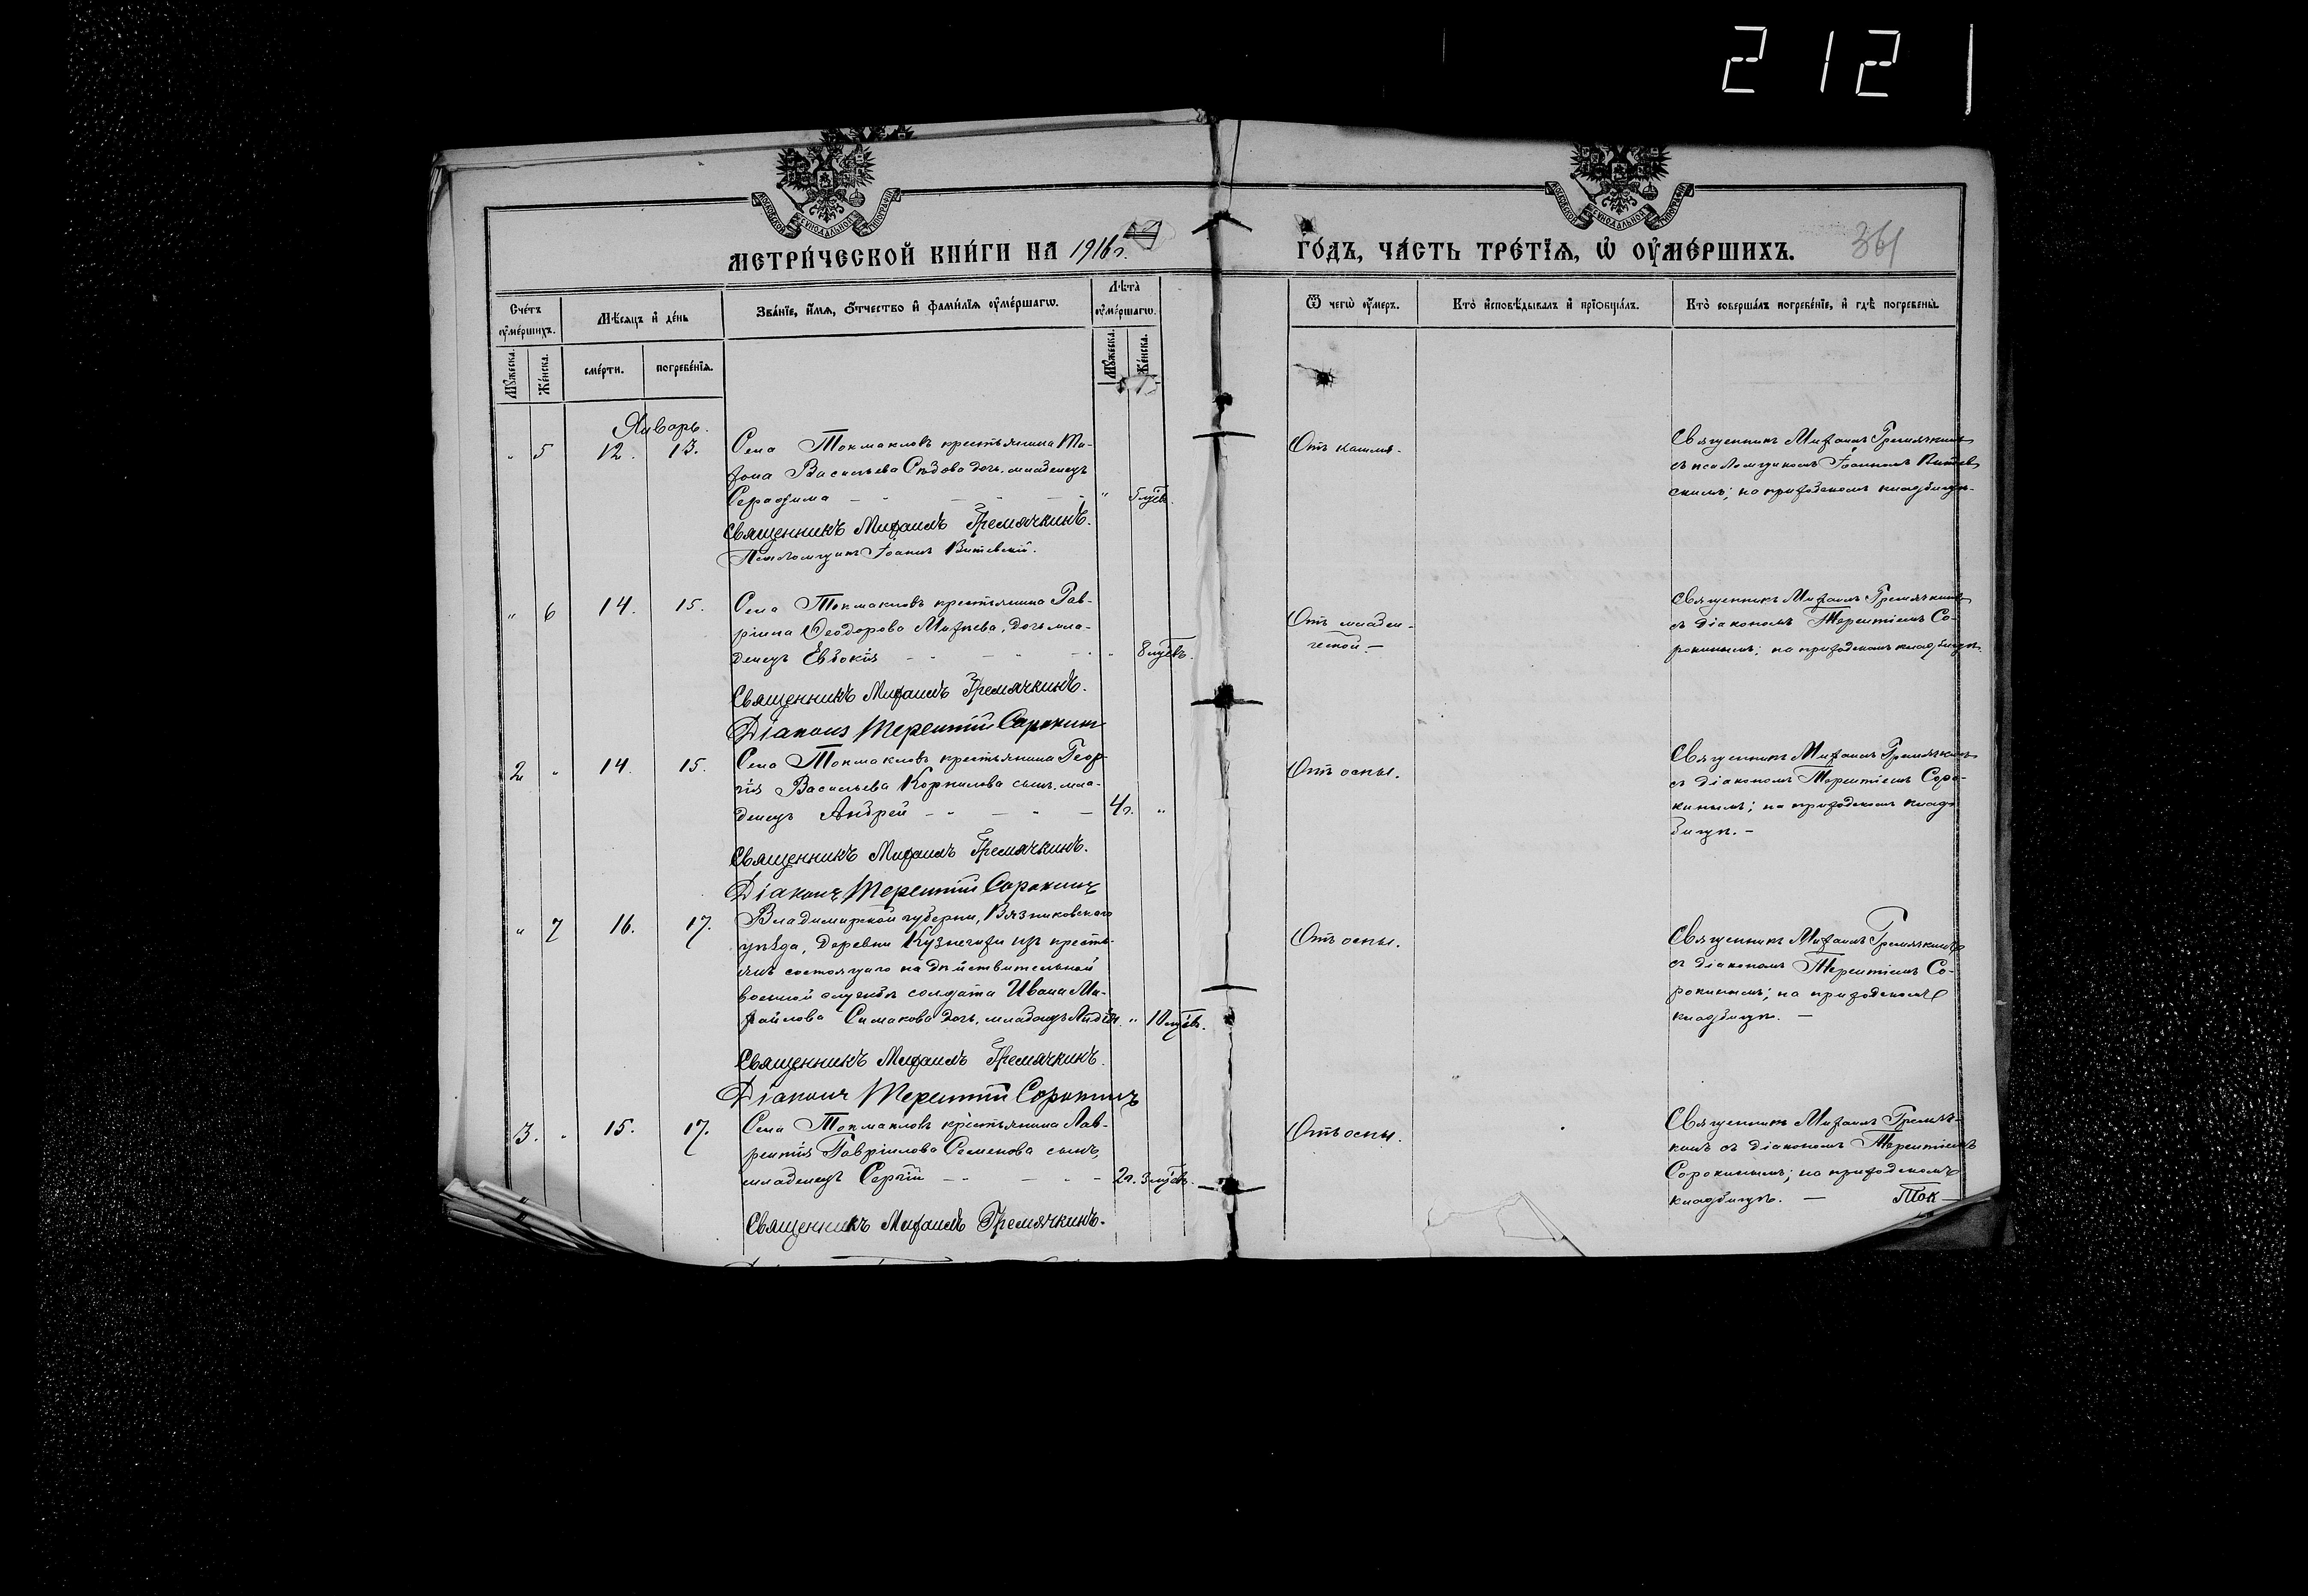 2121
МОСКОВСКОЙ СѴНОДАЛЬНОЙ ТИПОГРАФІИ
МОСКОВСКОЙ СѴНОДАЛЬНОЙ ТИПОГРАФІИ
МЕТРИ́ЧЕСКОЙ КНИ́ГИ НА 1916 г.
ГО́ДЪ, ЧА́СТЬ ТРЕ́ТІѦ, Ѡ҆ ОУ҆МЕ́РШИХЪ.
361
Сче́тъ оу҆ме́ршихъ.
Мѣ́сяцъ и҆ де́нь
Зва́нїе, и҆́мѧ, ѻ҆́тчество и҆ фами́лїѧ оу҆ме́ршагѡ.
Лѣ́та оу҆ме́ршагѡ.
Ѿ чегѡ̀ оу҆́меръ.
Кто̀ и҆сповѣ́дывалъ и҆ прїѡбща́лъ.
Кто̀ соверша́лъ погребе́нїе, и҆ гдѣ̀ погребены̀.
Мꙋ́жеска.
Же́нска.
сме́рти.
погребе́нїѧ.
Мꙋ́жеска.
Же́нска.
Январь.
" 5 12. 13. Села Токмакловъ крестьянина Ти-
фона Васильева Сѣдова дочь, младенецъ
Серафима - " - - - " 5 мцѣв.
Священникъ Михаилъ Гремячкинъ.
Псаломщикъ Іоаннъ Витевскій.
Отъ кашля.
Священникъ Михаилъ Гремячкинъ
съ псаломщикомъ Іоанномъ Витев
скимъ; на приходскомъ кладбищѣ.
" 6 14. 15. Села Токмакловъ крестьянина Гав-
ріила Ѳеодорова Михѣева, дочь мла-
денецъ Евдокія - " - " - " 8 мцѣвъ.
Священникъ Михаилъ Гремячкинъ.
Діаконъ Терентій Сорокинъ
Отъ младен-
ческой. -
Священникъ Михаилъ Гремячкинъ
съ діакономъ Терентіемъ Со-
рокинымъ; на приходскомъ кладбищѣ.
2 " 14. 15. Села Токмакловъ крестьянина Геор-
гія Васильева Корнилова сынъ, мла-
денецъ Андрей - " - " - 4 г. "
Священникъ Михаилъ Гремячкинъ.
Діаконъ Терентій Сорокинъ
Отъ оспы.
Священникъ Михаилъ Гремячкинъ
съ діакономъ Терентіемъ Соро-
кинымъ; на приходскомъ клад-
бищѣ. -
" 7 16. 17. Владимирской губерни, Вязниковскаго
уѣзда, деревни Кузнечихи изъ кресть-
янъ состоящаго на дѣйствительной
военной службѣ солдата Ивана Ми-
хайлова Симакова дочь, младенецъ Лидія. " 10 мцѣв.
Священникъ Михаилъ Гремячкинъ.
Діаконъ Терентій Сорокинъ
Отъ оспы.
Священникъ Михаилъ Гремячкинъ
съ діакономъ Терентіемъ Со-
рокинымъ; на приходскомъ
кладбищѣ. -
3. " 15. 17. Села Токмакловъ крестьянина Лав-
рентія Гавріилова Семенова сынъ,
младенецъ Сергій - " - " - 2 г. 3 мцѣв.
Священникъ Михаилъ Гремячкинъ.
Отъ оспы.
Священникъ Михаилъ Гремяч-
кинъ съ діакономъ Терентіемъ
Сорокинымъ; на приходскомъ
кладбищѣ. - Ток-